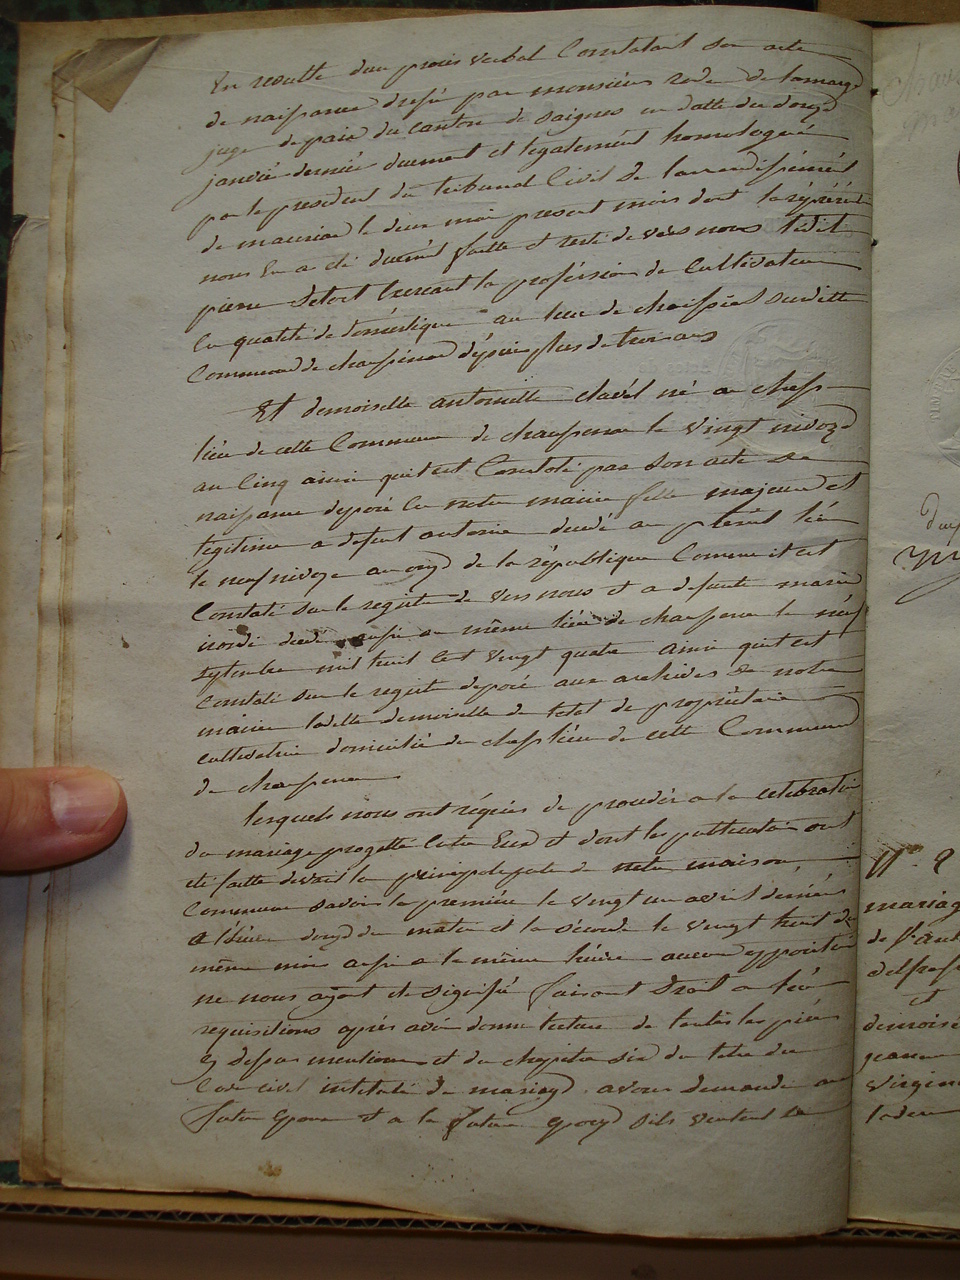 En resulte d'un procès verbal Constatant son acte
de naissance dressé par monsieur rode de lamaze
juge de paix du canton de saignes en datte du douze
janvié dernier duement et legatement homologué
par le president du tribunal Civil de l'arrondissement
de mauriac le deux mai present mois dont
nous en a été duement faitte et reste de vers nous ledit
pierre detort Exercant la profession de Cultivateur
En qualité de domestique au lieu de susditte
Commune de chaussenac depuis plus de trois ans
Et demoiselle antoinette clavel né au chefs
lieu de cette Commune de chaussenac le vingt nivoze
au Cinq ainsi quil est Constaté par son acte de
naissance deposé En notre mairie fille majeure et
legitime a defunt antoine decedé au present lieu
le neuf nivoze an onze de la république Comme il est
Constaté sur le registre de vers nous et a defunte marie
decedé aussi au même lieu de chaussenac le neuf
septembre mil huit Cent vingt quatre ainsi quil est
Constaté sur le registre deposé aux archives de notre
mairie laditte demoiselle de l'etat de propriétaire
cultivatrice domicilié du chefs lieu de cette Commune
de chaussenac
lesquels nous ont réquis de proceder a la celebration
du mariage progetté Entre Eux et dont les publications ont
été faitte devant la principale porte de notre maison
Commune savoir la première le vingt un avril dernier
a lheure douze du matin et la seconde le vingt huit du
même mois aussi a la même heure aucune opposition
ne nous ayant été signifié faisant Droit a leur
requisitions après avoir donné lecture de toutes les pièces
Cy dessus mentionné et du chapitre six du titre du
Code civil intitulé du mariage avons demandé au
futur Epoux et a la future Epouze sils veulent se
N. 9
mariag
de St
Et
demoise
jeanne
Virgin